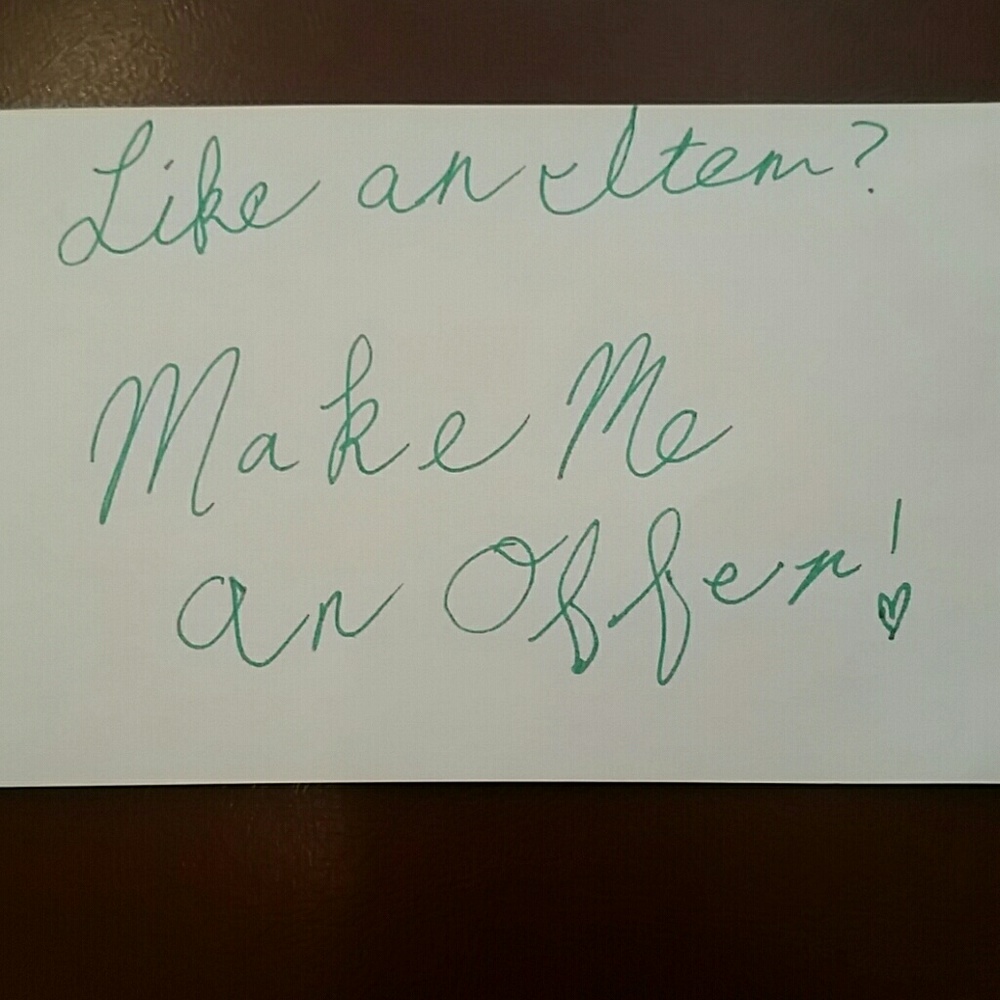 Like an Item?
Make Me
an Offer!